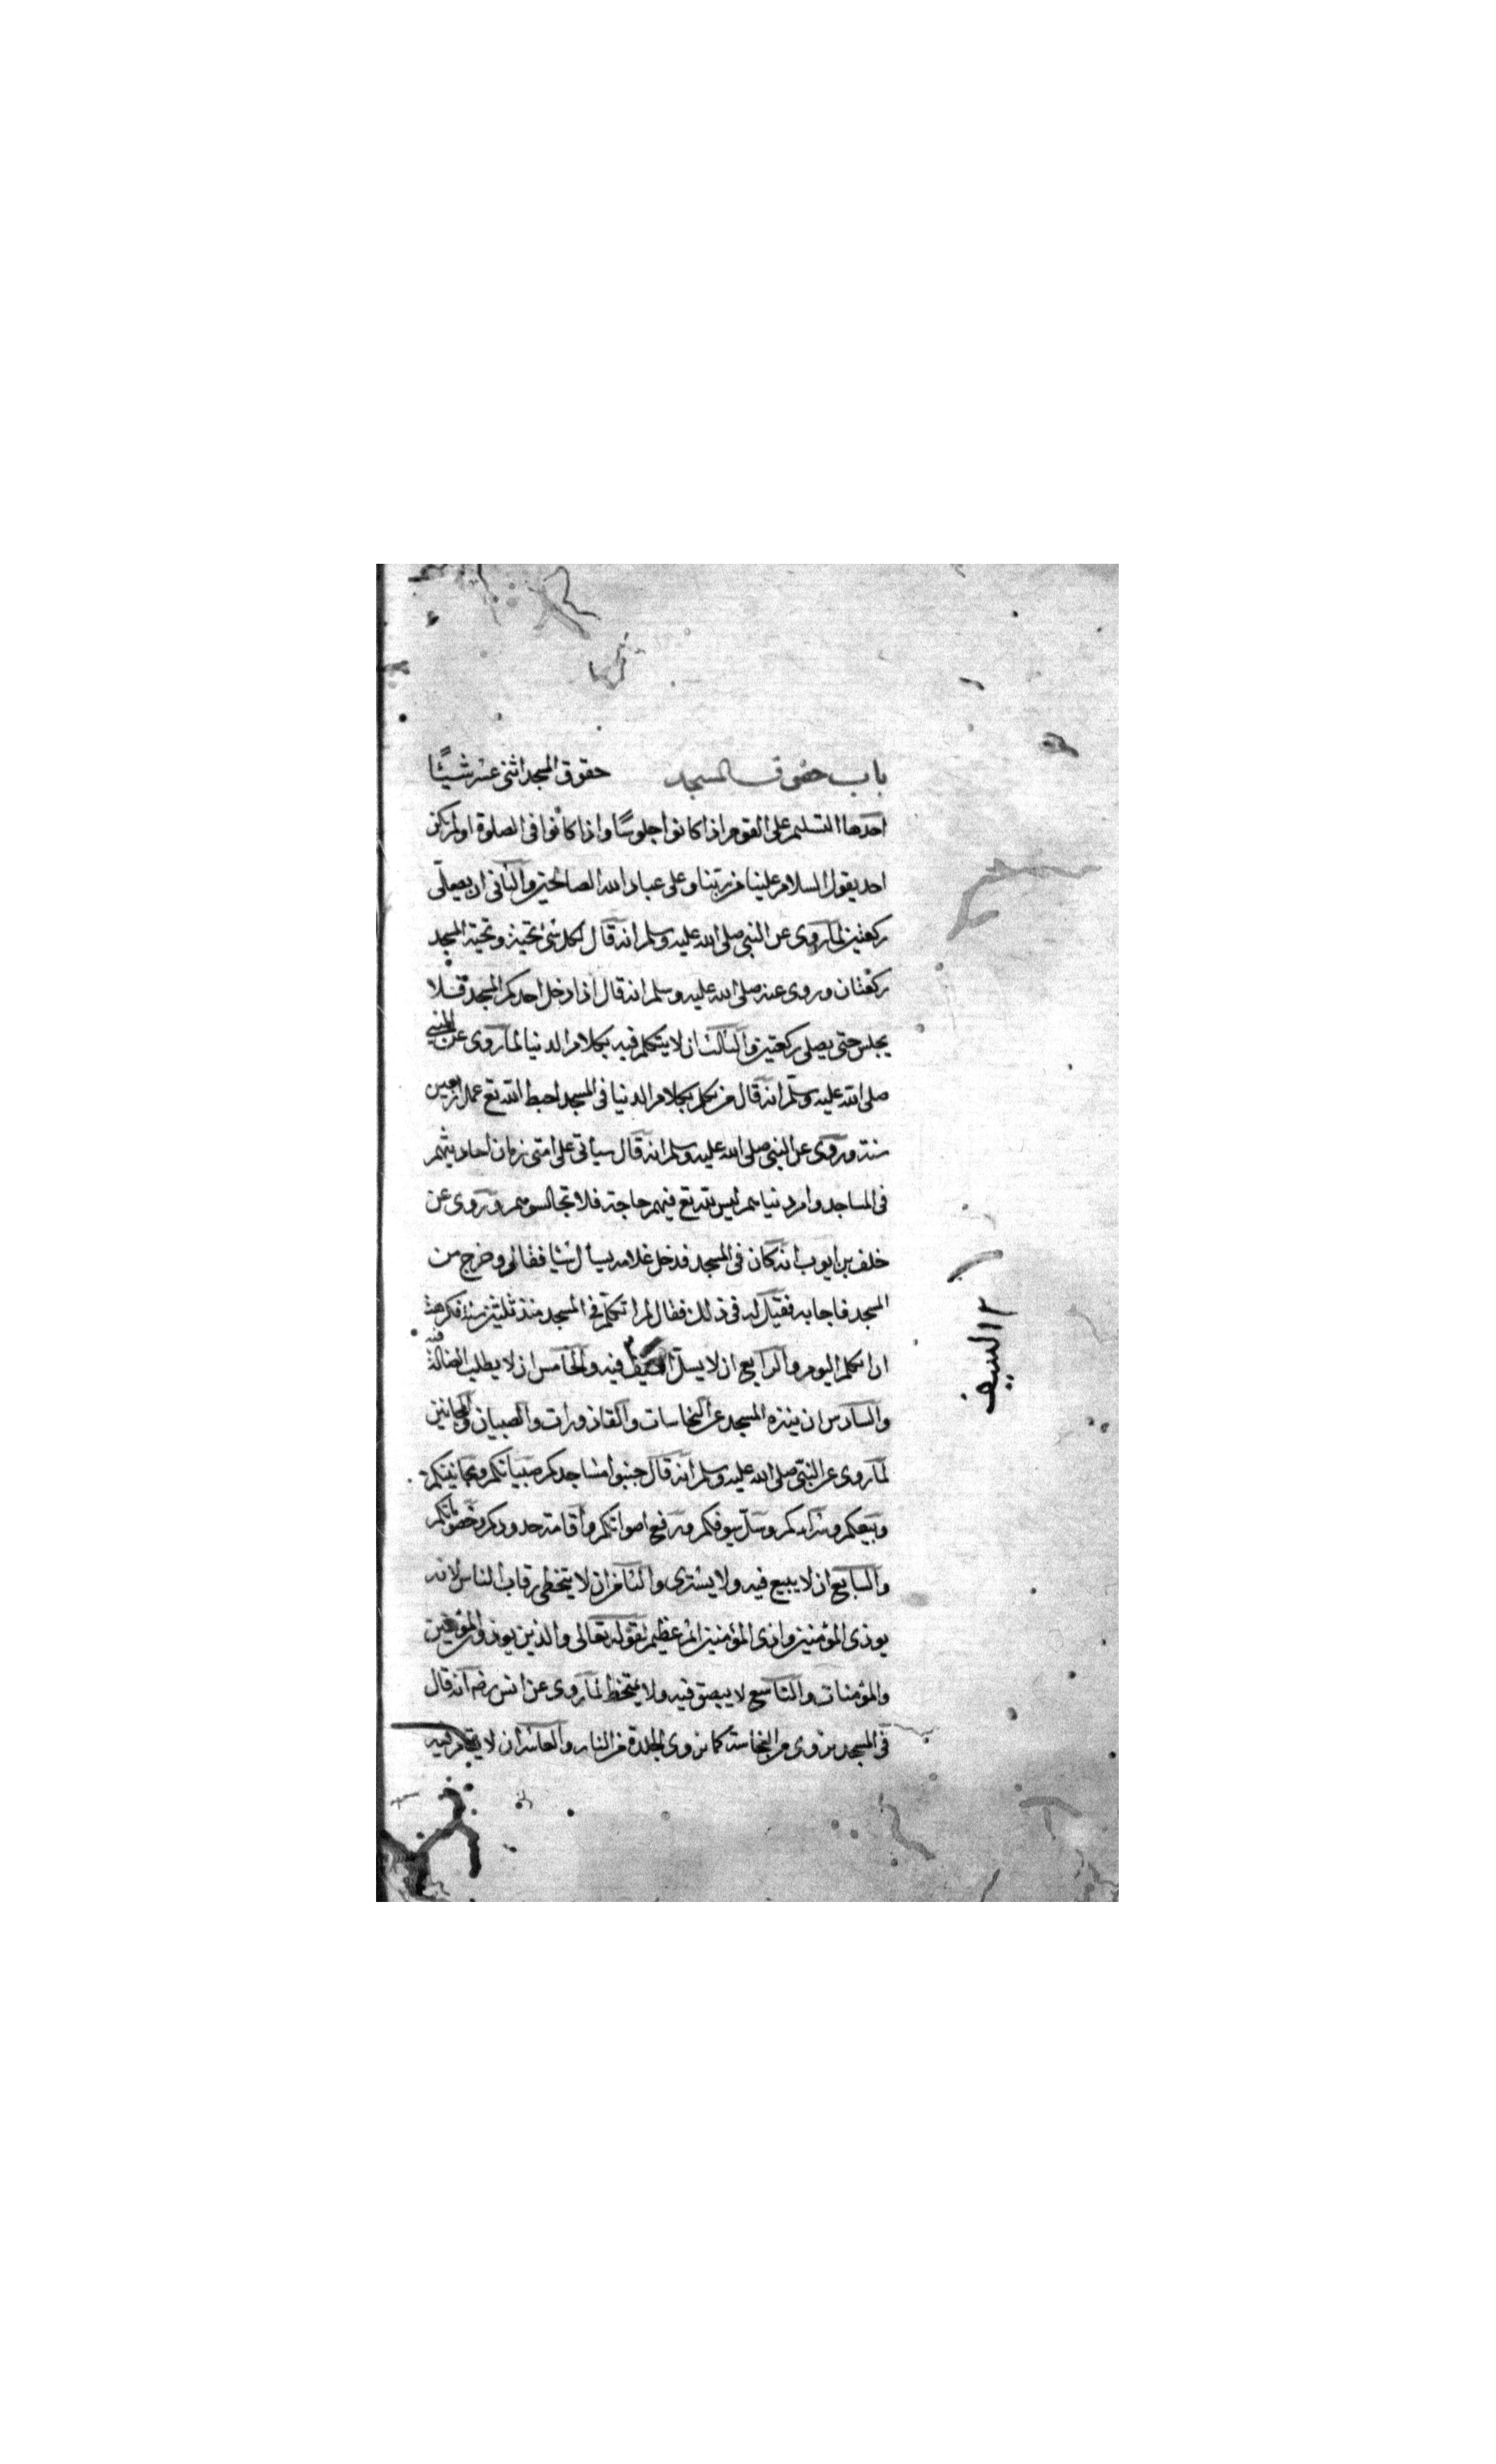 باب حقوق المسجد حقوق المسجد اثنى عشر شيئًا
احدها التسليم على القوم اذا كانوا جلوسًا واذا كانوا فى الصلوة او لم يكن
احد يقول السلام علينا من ربنا وعلى عباد الله الصالحين والثانى ان يصلى
ركعتين لما روى عن النبى صلى الله عليه وسلم انه قال لكل شئ تحية وتحية المسجد
ركعتان وروى عنه صلى الله عليه وسلم انه قال اذا دخل احدكم المسجد فلا
يجلس حتى يصلى ركعتين والثالث ان لا يتكلم فيه بكلام الدنيا لما روى عن النبى
صلى الله عليه وسلم انه قال من تكلم بكلام الدنيا فى المسجد احبط الله تع عمل اربعين
سنة وروى عن النبى صلى الله عليه وسلم انه قال سيأتى على امتى زمان احاديثهم
فى المساجد وامر دنياهم ليس لله تع فيهم حاجة فلا تجالسوهم وروى عن
خلف بن ايوب انه كان فى المسجد فدخل غلامه يسأل شيا فقام وخرج من
المسجد فاجابه فقيل له فى ذلك فقال لم اتكلم فى المسجد منذ ثلثين سنة فكرهت
ان اتكلم اليوم والرابع ان لا يسل السيف فيه والخامس ان لا يطلب الضالة فيه
والسادس ان ينزه المسجد عن النجاسات والقاذورات والصبيان والمجانين
لما روى عن النبى صلى الله عليه وسلم انه قال جنبوا مساجدكم صبيانكم ومجانينكم
وبيعكم وشراءكم وسل سيوفكم ورفع اصواتكم واقامة حدودكم وخصوماتكم
والسابع ان لا يبيع فيه ولا يشترى والثامن ان لا يتخطى رقاب الناس لانه
يوذى المؤمنين واذى المؤمنين اثم عظيم لقوله تعالى والذين يوذون المؤمنين
والمؤمنات والتاسع لا يبصق فيه ولا يتمخط لما روى عن انس رضه انه قال
فى المسجد ينزوى من النجاسة كما ينزوى الجلدة من النار والعاشر ان لا فيه
السيف